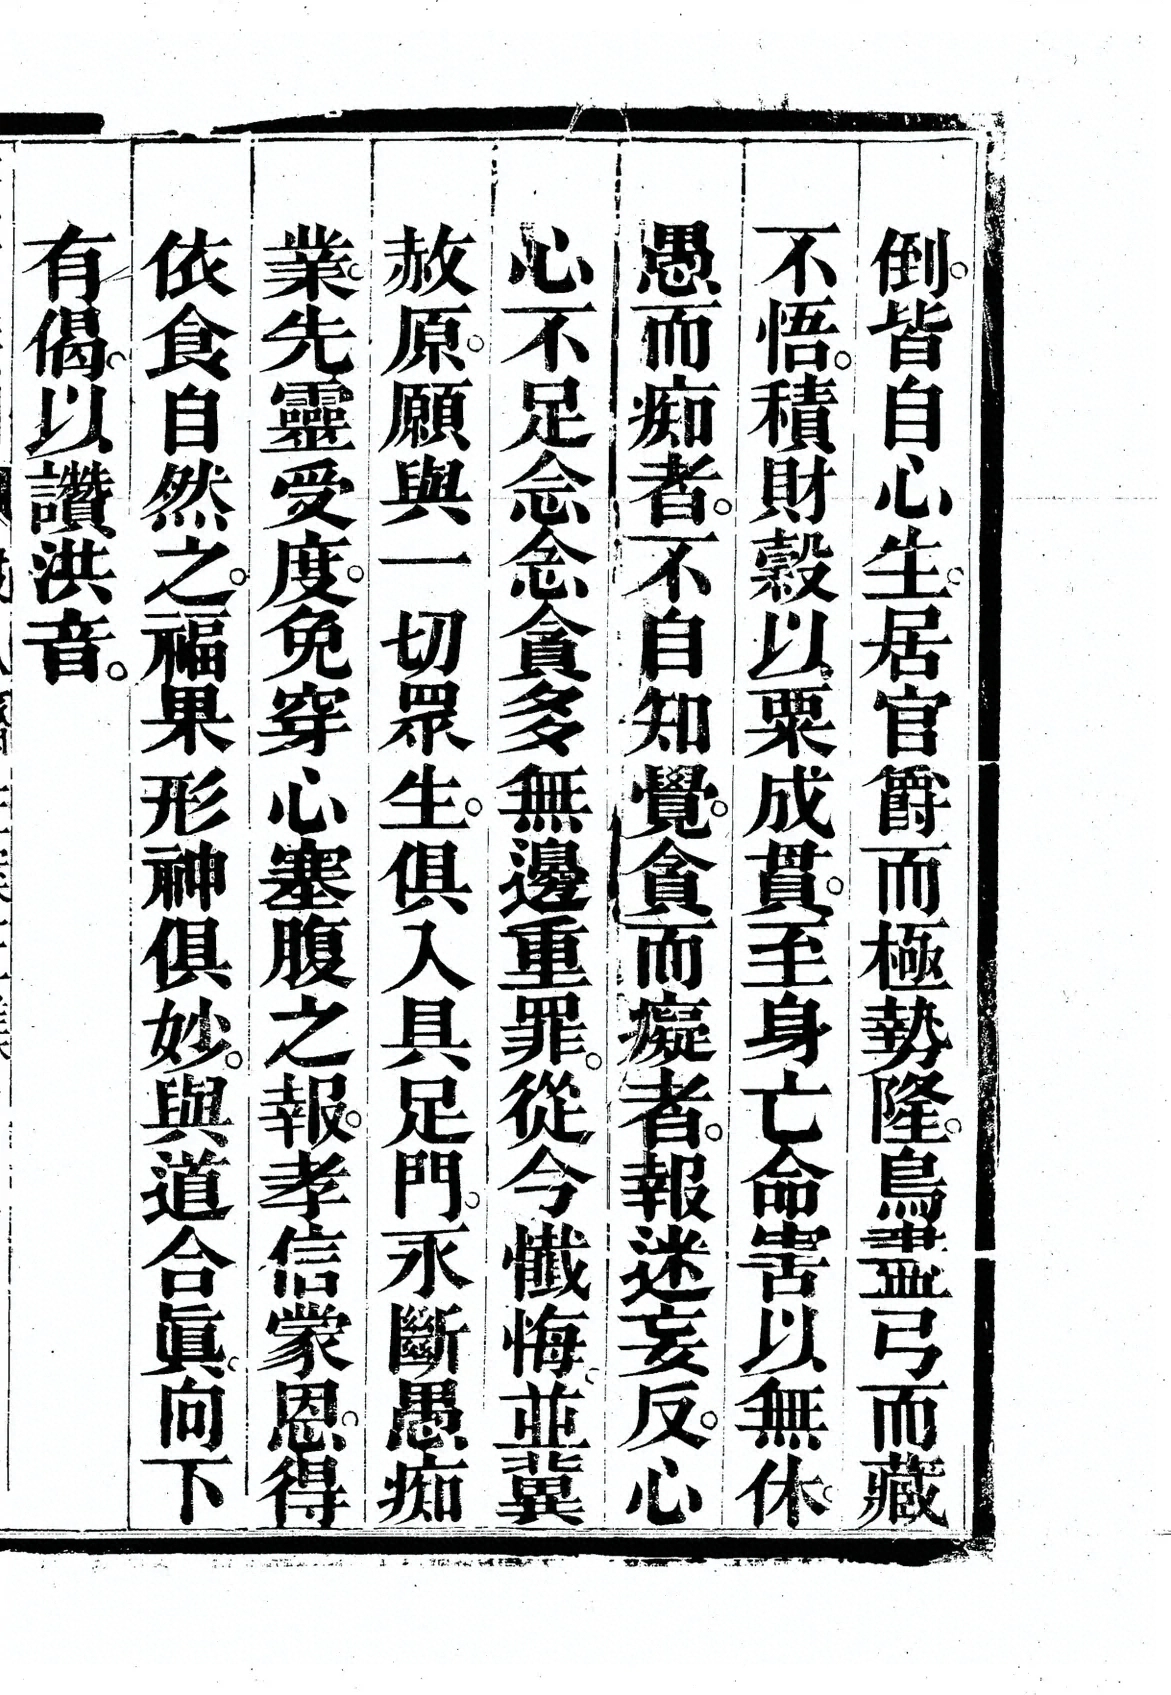 倒。皆自心生。居官爵而極勢隆。鳥盡弓而藏
不悟。積財穀以粟成貫。至身亡命害以無休。
愚而痴者。不自知覺。貪而癡者。報迷妄反。心
心不足念念貪多無邊重罪。從今懺悔。並冀
赦原。願與一切眾生。俱入具足門。永斷愚痴
業。先靈受度。免穿心塞腹之報。孝信蒙恩。得
依食自然之。福果形神俱妙。與道合眞。向下
有偈。以讚洪音。